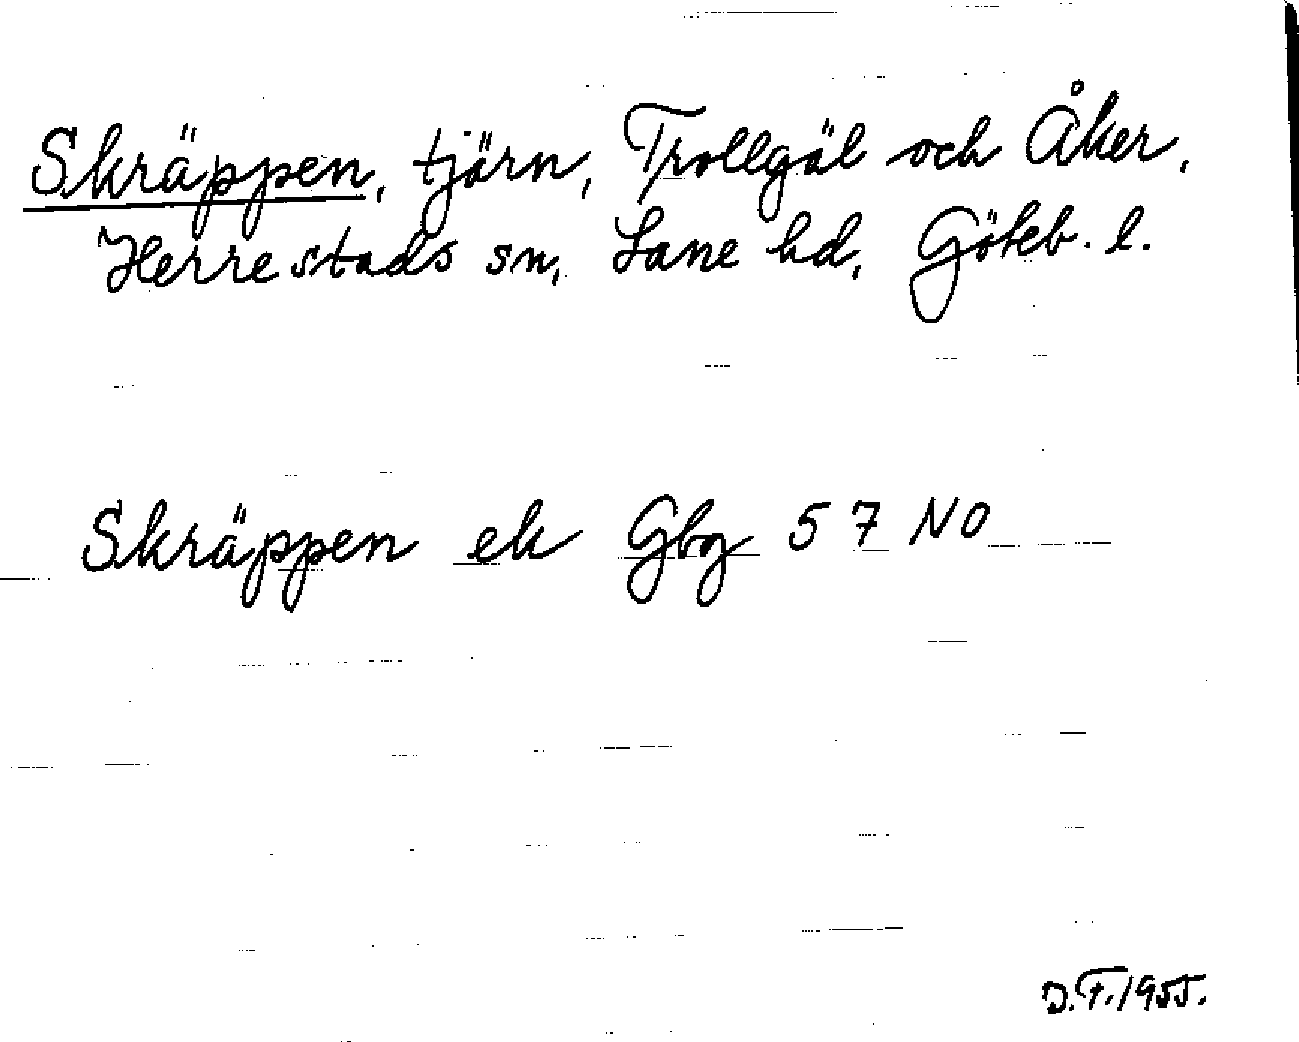 Skräppen, tjärn, Trollgäl och Åker,
Herrestads sn, Lane hd, Göteb. l.
Skräppen ek Gbg 57 NO
D.F. 1955.